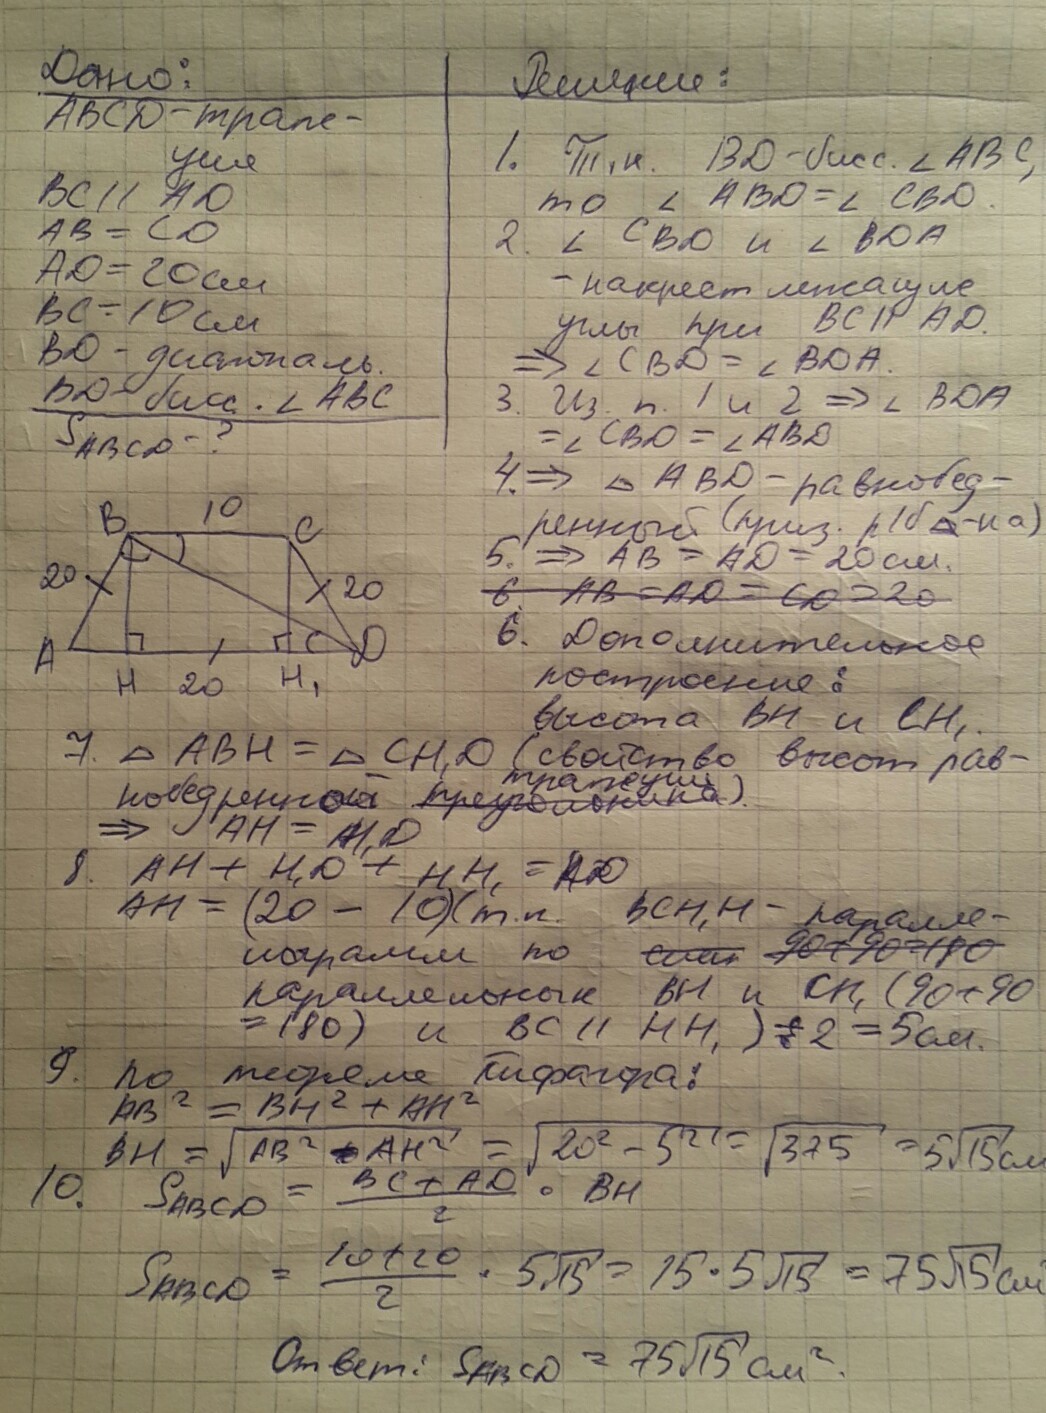 Дано:
ABCD - трапе-
ция
BC || AD
AB = CD
AD = 20 см
BC = 10 см
BD - диагональ.
BD - бисс. ∠ ABC
S ABCD - ?
B 10 C
20 20
A H 20 H₁ D
Решение:
1. Т.к. BD - бисс. ∠ ABC,
то ∠ ABD = ∠ CBD.
2. ∠ CBD и ∠ BDA
- накрест лежащие
углы при BC || AD.
⇒ ∠ CBD = ∠ BDA.
3. Из п. 1 и 2 ⇒ ∠ BDA
= ∠ CBD = ∠ ABD
4. ⇒ △ ABD - равнобед-
ренный (приз. р/б △-ка)
5. ⇒ AB = AD = 20 см.
6. AB = AD = CD = 20
6. Дополнительное
построение:
высота BH и CH₁.
7. △ ABH = △ CH₁D (свойство высот рав-
нобедренной треугольника) трапеции
⇒ AH = H₁D
8. AH + H₁D + HH₁ = AD
AH = (20 - 10)(т.к. BCH₁H - паралле-
лограмм по 90+90=180
параллельным BH и CH₁ (90+90
=180) и BC || HH₁) : 2 = 5 см.
9. По теореме Пифагора:
AB² = BH² + AH²
BH = √(AB² - AH²) = √(20² - 5²) = √375 = 5√15 см
10. S ABCD = (BC + AD)/2 · BH
S ABCD = (10+20)/2 · 5√15 = 15 · 5√15 = 75√15 см²
Ответ: S ABCD = 75√15 см².